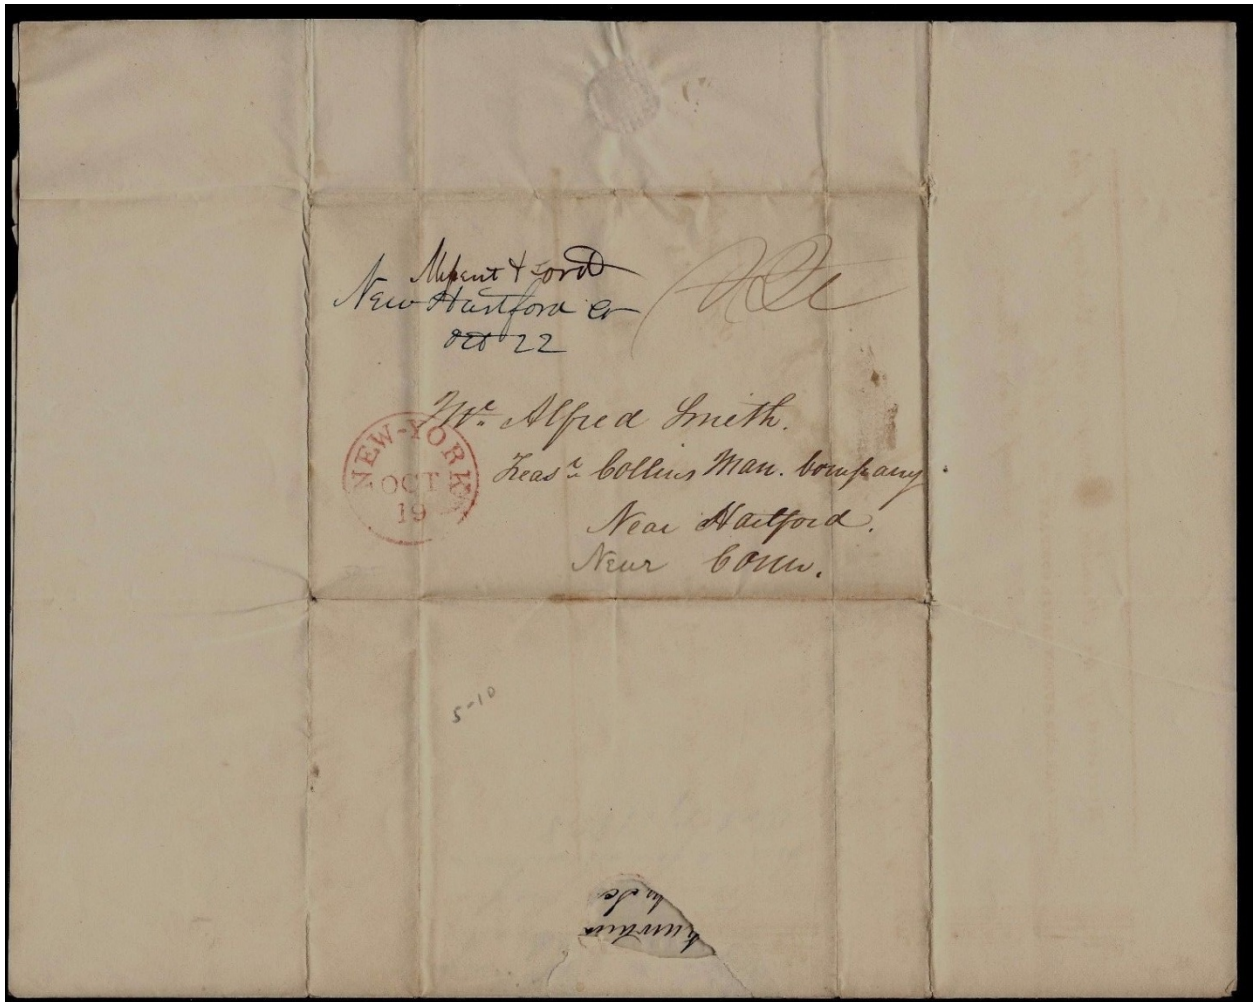 Missent & Ford
New Hartford Ct
Oct 22
NEW-YORK
OCT
19
Mr. Alfred Smith.
Treasr. Collins Man. Company
Near Hartford.
Near Conn.
5-10